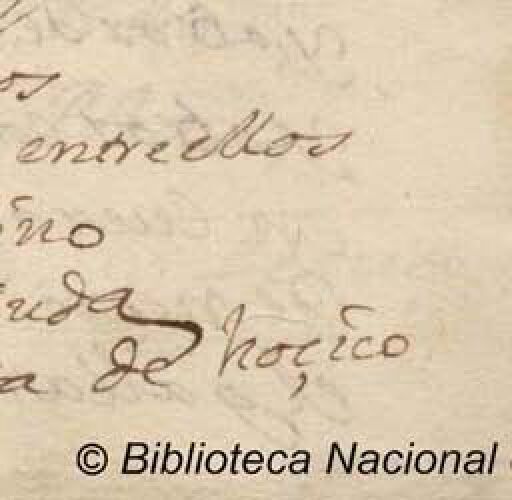 os
entre ellos
ino
uda
a de hoçico
© Biblioteca Nacional